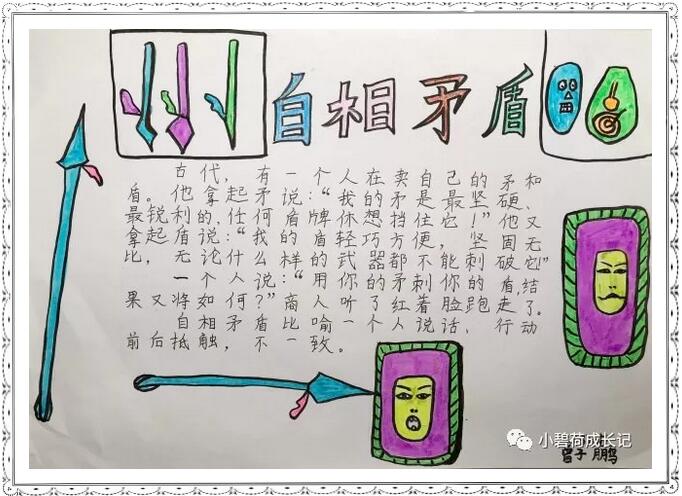 自相矛盾
古代，有一个人在卖自己的矛和
盾。他拿起矛说：“我的矛是最坚硬、
最锐利的，任何盾牌休想挡住它！”他又
拿起盾说：“我的盾轻巧方便，坚固无
比，无论什么样的武器都不能刺破它！”
一个人说：“用你的矛刺你的盾，结
果又将如何？”商人听了红着脸跑走了。
自相矛盾比喻一个人说话、行动
前后抵触，不一致。
小碧荷成长记
曾子鹏